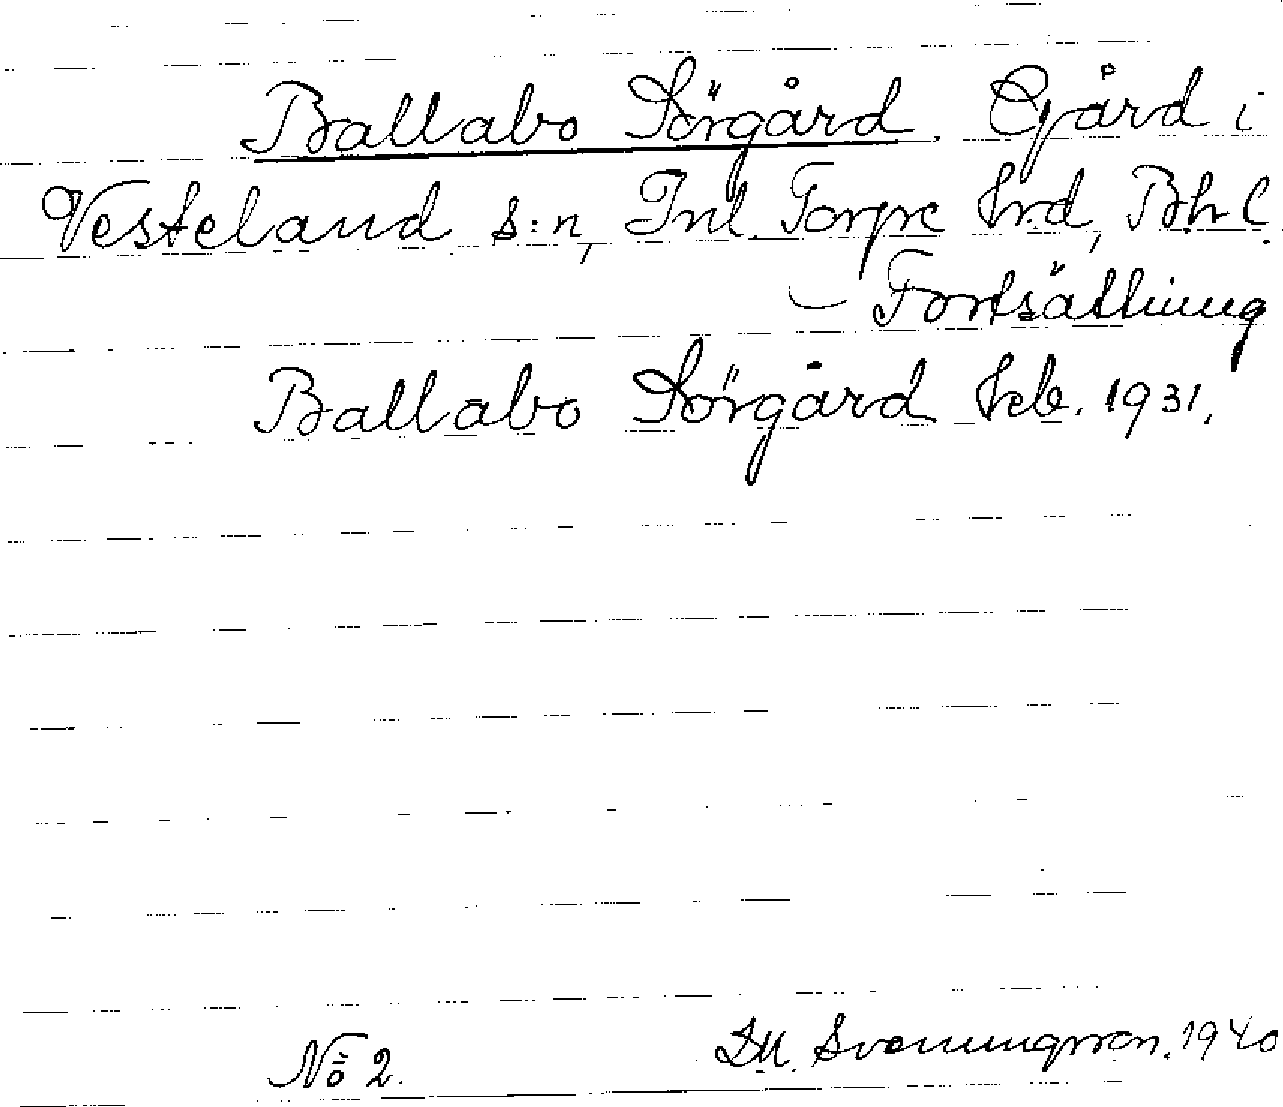 Ballabo Sörgård. Gård i
Västerland s:n, Inl. Torpe hrd, Bhl.
– Fortsättning
Ballabo Sörgård feb. 1931.
No 2. D.M. Svenungsson. 1940